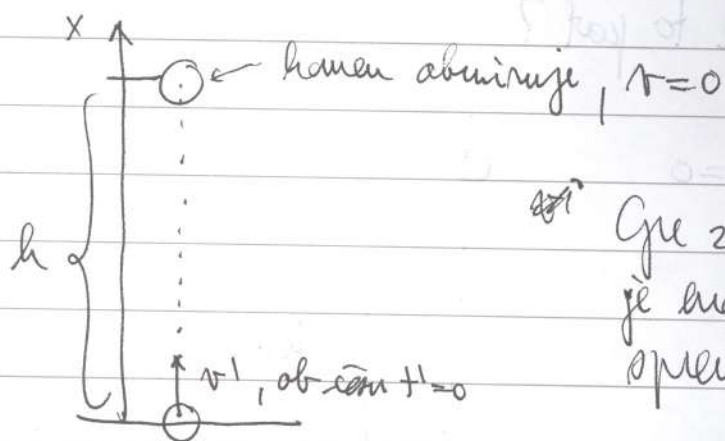 x
kamen obmiruje, v=0
h
Gre z
je
spre
v', ob času t'=0